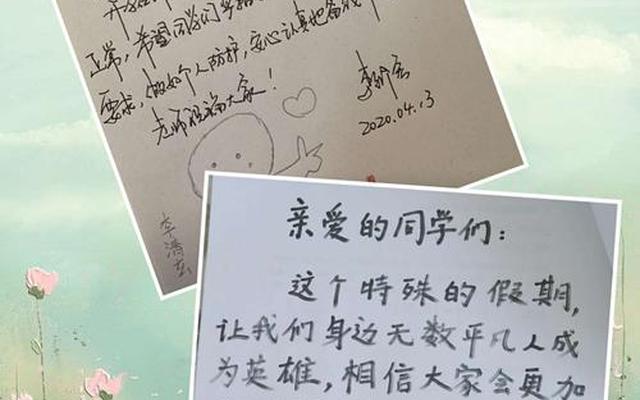 正常，希望同学们
要求，做好个人防护，安心认真地备战
老师祝福大家！
2020.04.13
李清玄
亲爱的同学们：
这个特殊的假期，
让我们身边无数平凡人成
为英雄，相信大家会更加